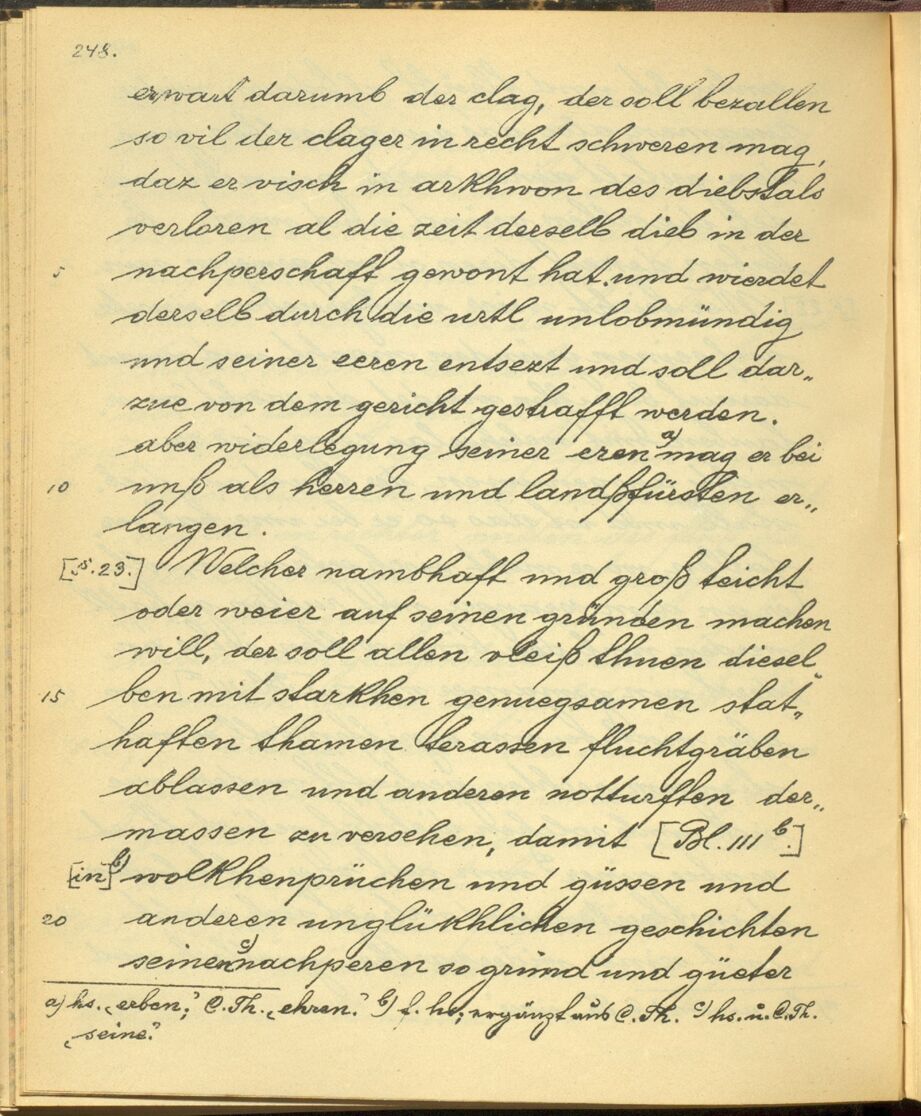 248.
erwart darumb der clag, der soll bezallen
so vil der clager in recht schweren mag,
daz er visch in arkhwon des diebstals
verloren al die zeit derselb dieb in der
5 nachperschaft gewont hat. und wierdet
derselb durch die urtl unlobmündig
und seiner eeren entsezt und soll dar„
zue von dem gericht gestrafft werden.
aber widerlegung seiner eren a) mag er bei
10 unß als herren und landßfürsten er„
langen.
[§. 23.] Welcher nambhaft und groß teicht
oder weier auf seinen gründen machen
will, der soll allen vleiß thuen diesel„
15 ben mit starkhen genuegsamen stat„
haften thamen terassen fluchtgräben
ablassen und anderen notturfften der„
massen zu versehen, damit [Bl. 111 b.]
[in] b) wolkhenprüchen und güssen und
20 anderen unglükhlichen geschichten
seinen c) nachperen so grund und güeter
a) hs. „erben“; C. Th. „ehren.“ b) f. hs., ergänzt aus C. Th. c) hs. u. C. Th.
„seine.“